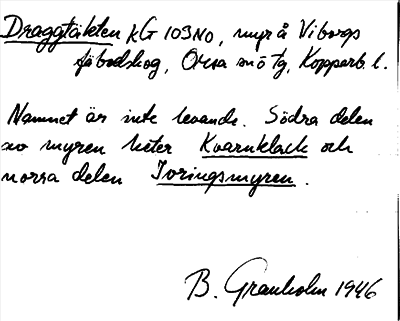 Draggtäkten KG 103NO, myr å Viborgs
fäbodskog, Orsa snö tg, Kopparb. l.
Namnet är inte levande. Södra delen
av myren heter Kvarnklack och
norra delen Ivringsmyren.
B. Granholm 1946